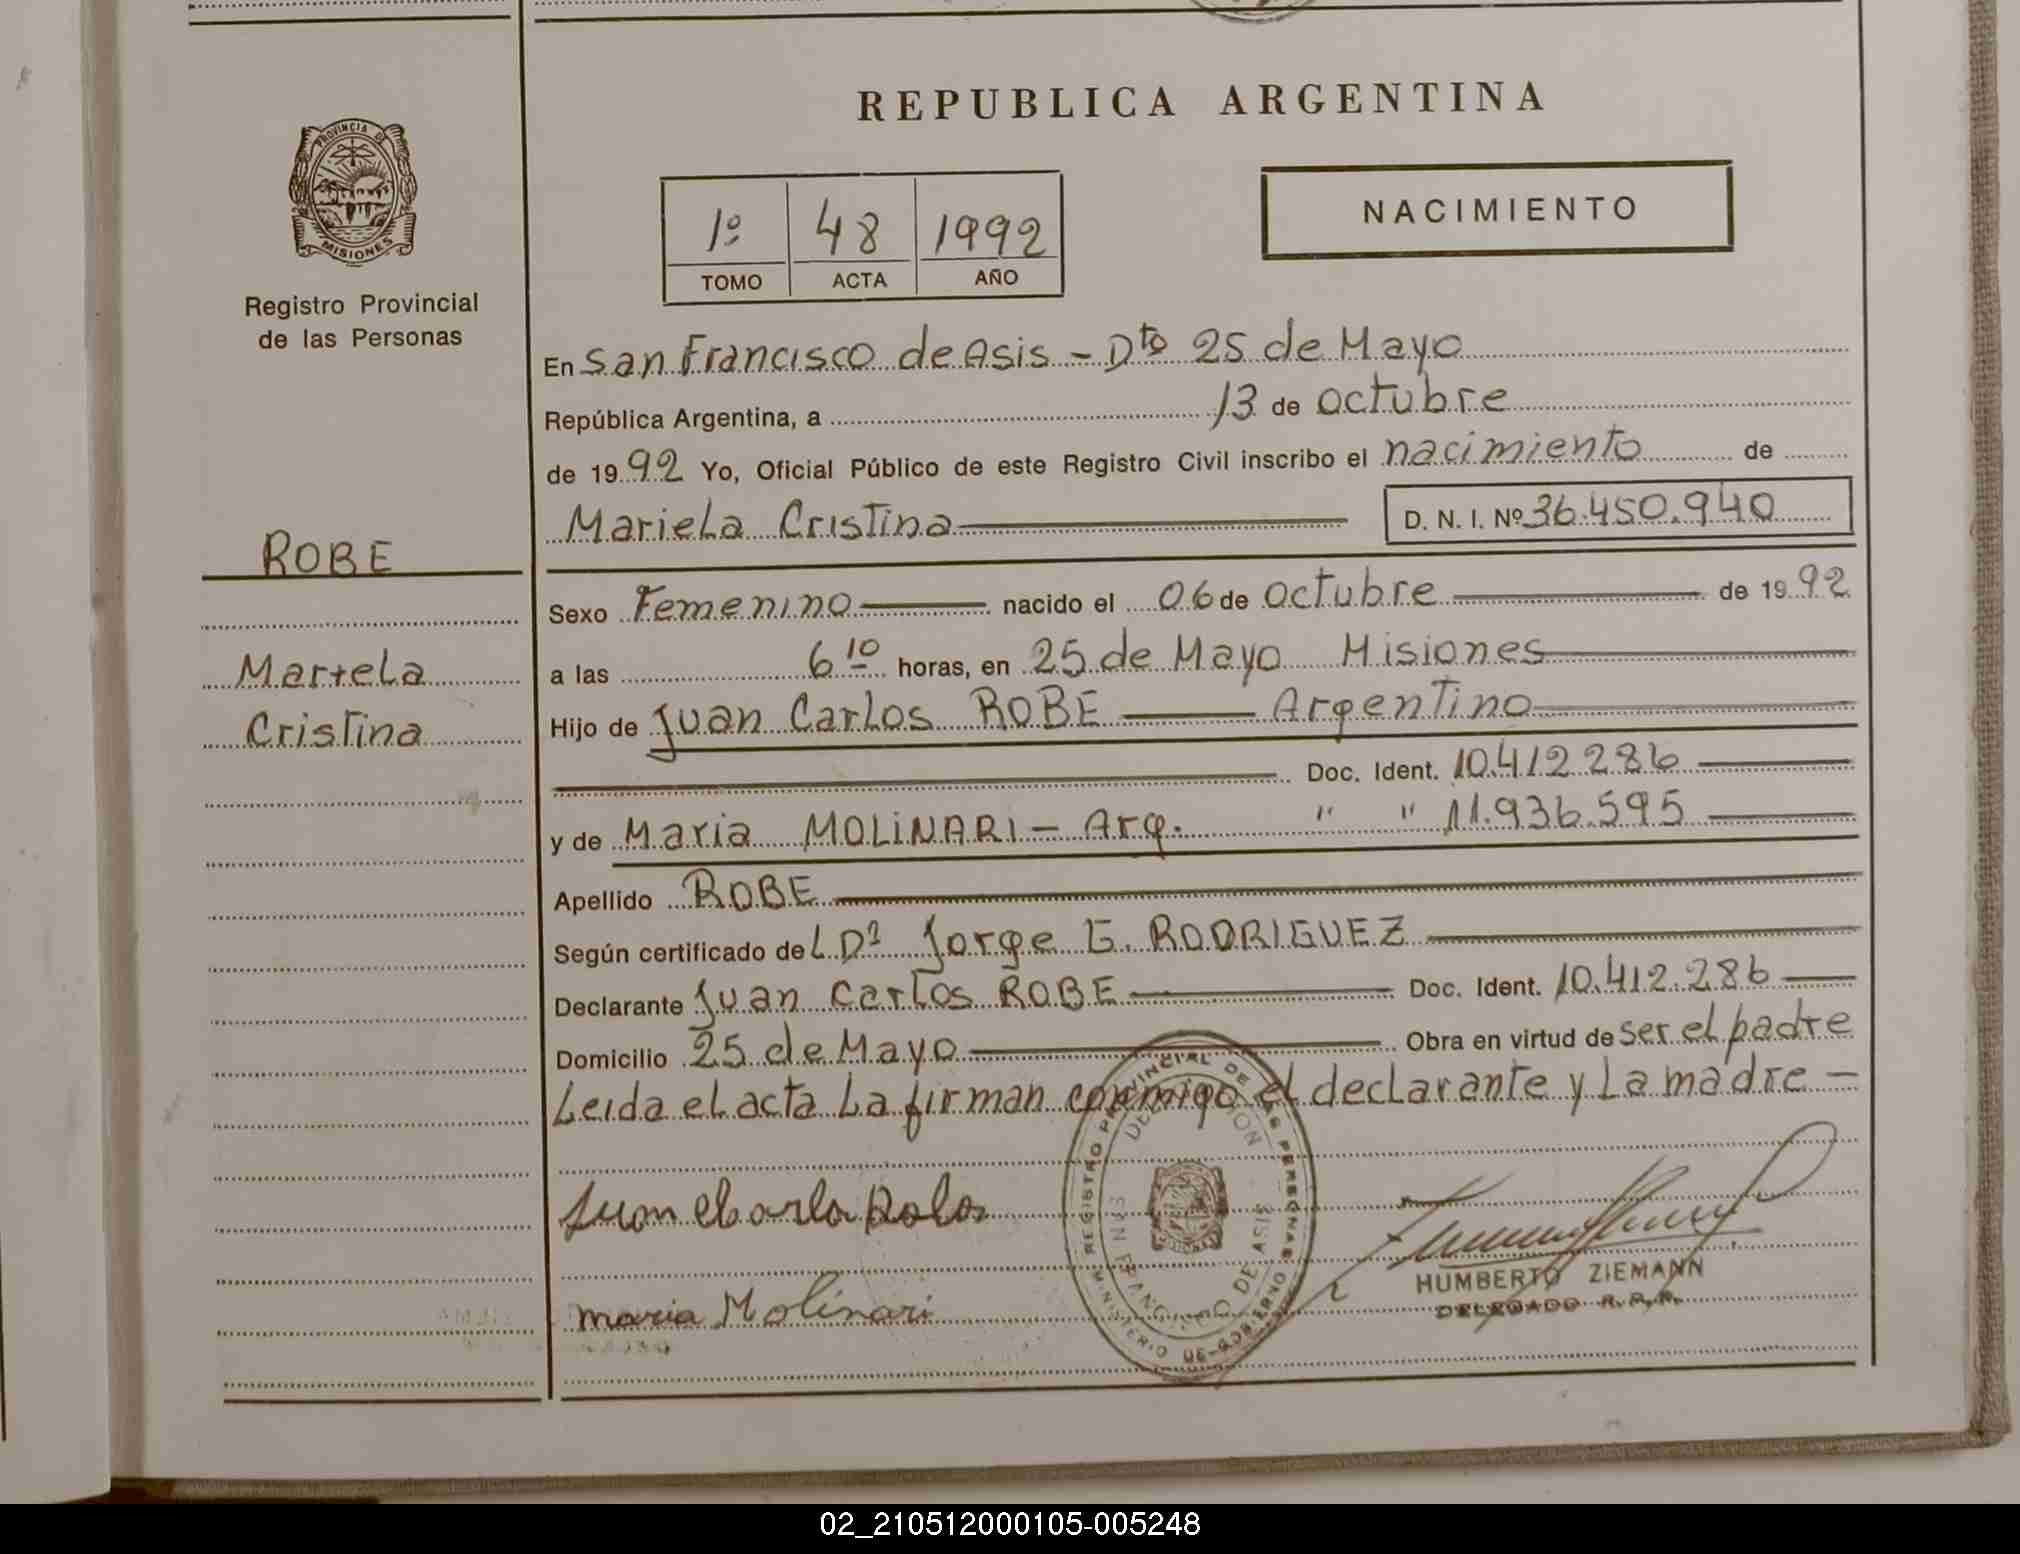 REPUBLICA ARGENTINA
PROVINCIA DE
MISIONES
Registro Provincial
de las Personas
1º 48 1992
TOMO ACTA AÑO
NACIMIENTO
En San Francisco de Asis - Dto 25 de Mayo
República Argentina, a 13 de octubre
de 1992 Yo, Oficial Público de este Registro Civil inscribo el nacimiento de
Mariela Cristina D. N. I. Nº 36.450.940
ROBE
Mariela
Cristina
Sexo Femenino nacido el 06 de octubre de 1992
a las 6 10 horas, en 25 de Mayo Misiones
Hijo de Juan Carlos ROBE Argentino
Doc. Ident. 10.412.286
y de Maria MOLINARI - Arg. " " 11.936.595
Apellido ROBE
Según certificado de L Dr Jorge E. RODRIGUEZ
Declarante Juan Carlos ROBE Doc. Ident. 10.412.286
Domicilio 25 de Mayo Obra en virtud de ser el padre
Leida el acta la firman conmigo el declarante y la madre -
REGISTRO PROVINCIAL DE LAS PERSONAS
MINISTERIO DE GOBIERNO
DELEGACION
SAN FRANCISCO DE ASIS
Juan Carlo Robe
maria Molinari
HUMBERTO ZIEMANN
DELEGADO R.P.P.
02_210512000105-005248